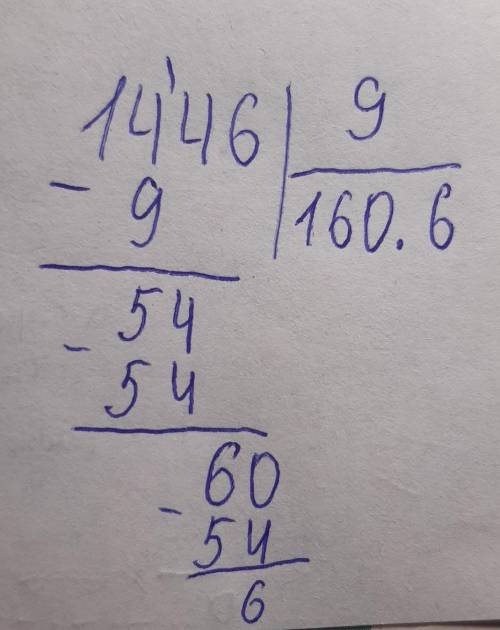 14'46 | 9
- 9 | 160.6
54
- 54
60
- 54
6